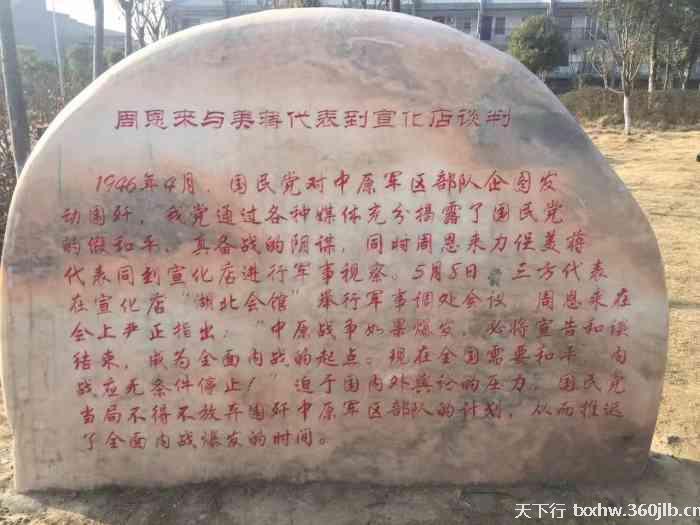 周恩来与美蒋代表到宣化店谈判
1946年4月，国民党对中原军区部队企图发
动围歼，我党通过各种媒体充分揭露了国民党
的假和平，真备战的阴谋，同时周恩来力促美蒋
代表同到宣化店进行军事视察。5月8日，三方代表
在宣化店“湖北会馆”举行军事调处会议，周恩来在
会上严正指出：“中原战争如果爆发，必将宣告和谈
结束，成为全面内战的起点。现在全国需要和平，内
战应无条件停止！迫于国内外舆论的压力，国民党
当局不得不放弃围歼中原军区部队的计划，从而推迟
了全面内战爆发的时间。
天下行 txxhw.360jlb.cn